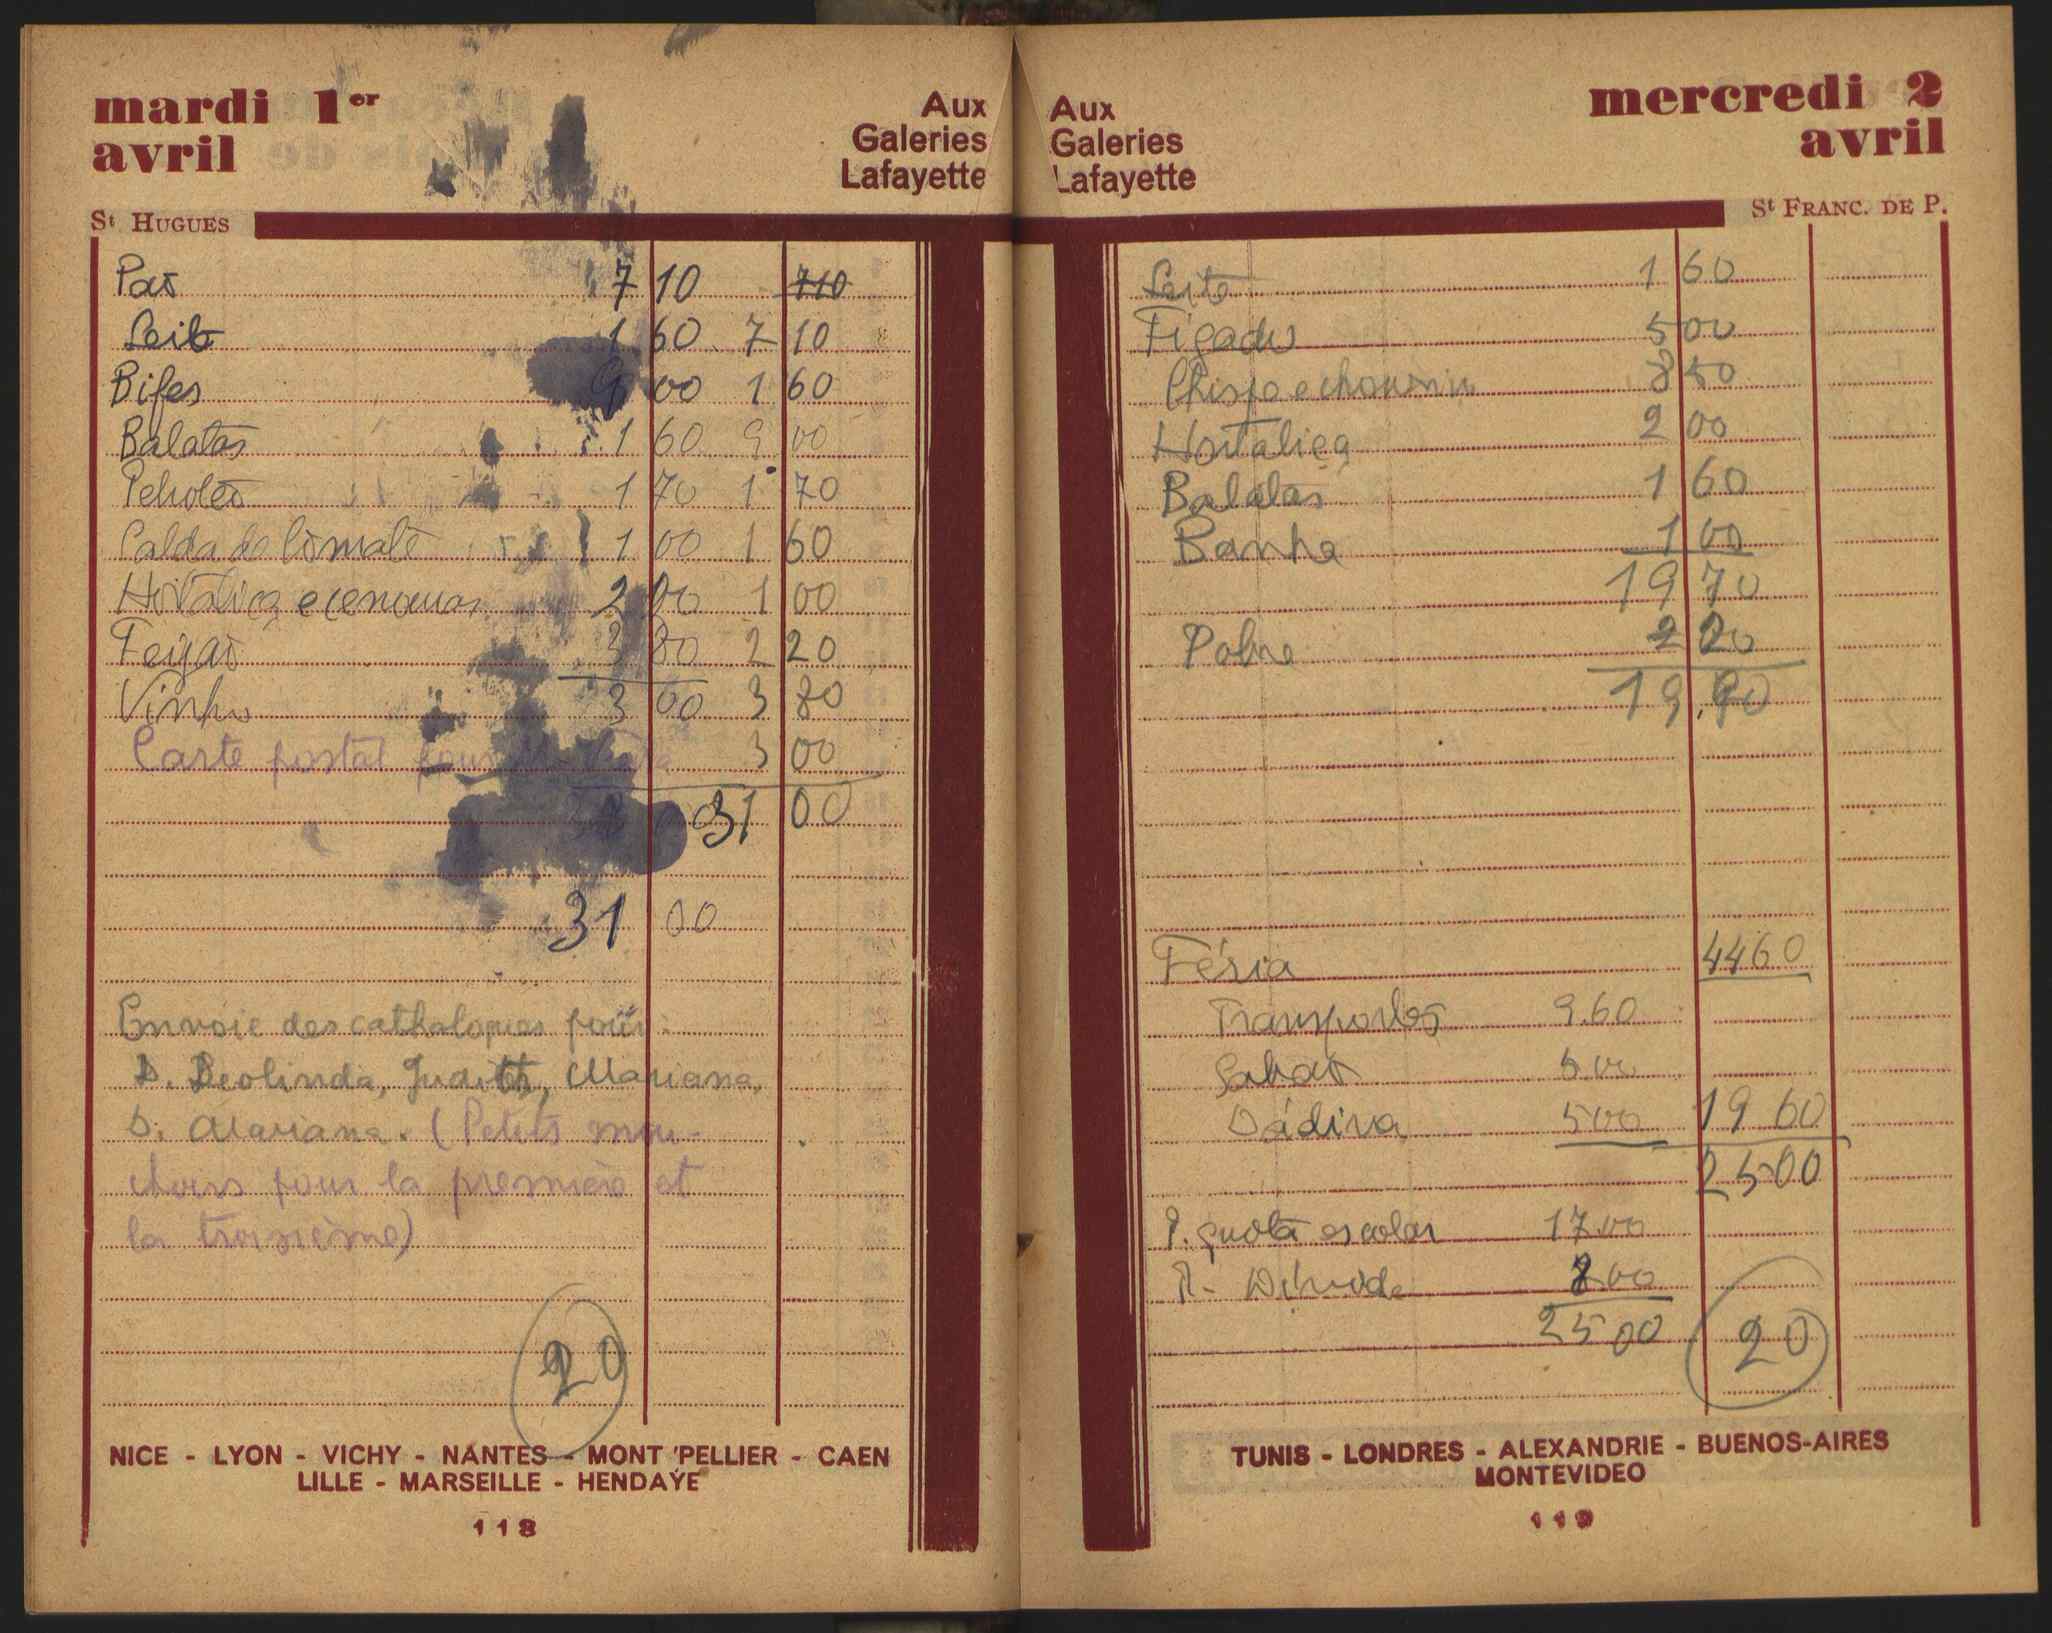 mardi 1er
avril
Aux
Galeries
Lafayette
St HUGUES
Pão 7 10 710
Leite 1 60 7 10
Bifes 9 00 1 60
Batatas 1 60 9 00
Petroleo 1 70 1 70
Calda de tomate 1 00 1 60
Hortaliça e cenouras 2 20 1 00
Feijão 3 80 2 20
Vinho 3 00 3 80
Carte postal pour 3 00
31 00
31 00
Envoie des cathalogues pour:
D. Deolinda, Judith, Mariana,
D. Mariana. (Petits mou-
choirs pour la première et
la troisième)
20
NICE - LYON - VICHY - NANTES - MONTPELLIER - CAEN
LILLE - MARSEILLE - HENDAYE
118
Aux
Galeries
Lafayette
mercredi 2
avril
St FRANC. DE P.
Leite 1 60
Figado 5 00
Chispe e chourriço 8 50
Hortaliça 2 00
Batatas 1 60
Banha 1 00
19 70
Pobre 20
19,90
Féria 4460
Transportes 9.60
Sabão 5.00
Dádiva 500 19 60
2500
P. quota escolar 17.00
P. 800
2500
20
TUNIS - LONDRES - ALEXANDRIE - BUENOS-AIRES
MONTEVIDEO
119